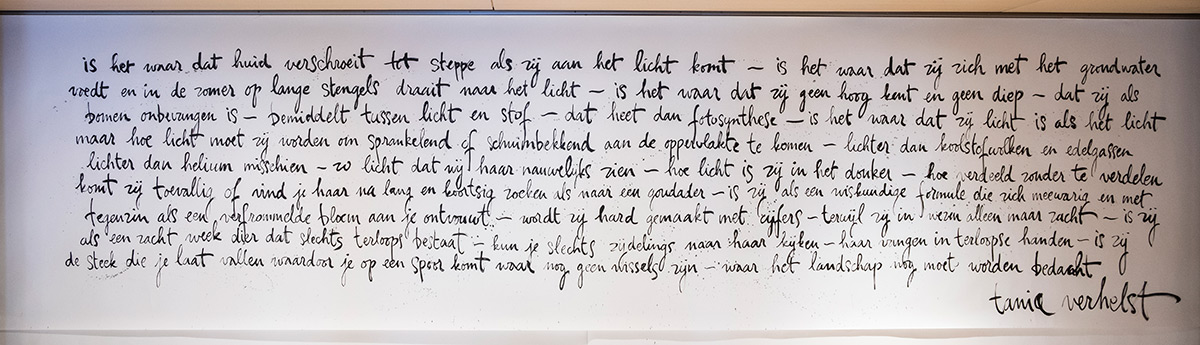 is het waar dat huid verschroeit tot steppe als zij aan het licht komt – is het waar dat zij zich met het grondwater
voedt en in de zomer op lange stengels draait naar het licht – is het waar dat zij geen hoog kent en geen diep – dat zij als
bomen onbevangen is – bemiddelt tussen licht en stof – dat heet dan fotosynthese – is het waar dat zij licht is als het licht
maar hoe licht moet zij worden om sprankelend of schuimbekkend aan de oppervlakte te komen – lichter dan koolstofwolken en edelgassen
lichter dan helium misschien – zo licht dat wij haar nauwelijks zien – hoe licht is zij in het donker – hoe verdeeld zonder te verdelen
komt zij toevallig of vind je haar na lang en koortsig zoeken als naar een goudader – is zij als een wiskundige formule die zich meewarig en met
tegenzin als een verfrommelde bloem aan je ontvouwt – wordt zij hard gemaakt met cijfers – terwijl zij in wezen alleen maar zacht – is zij
als een zacht week dier dat slechts terloops bestaat – kun je slechts zijdelings naar haar kijken – haar vangen in terloopse handen – is zij
de steek die je laat vallen waardoor je op een spoor komt waar nog geen wissels zijn – waar het landschap nog moet worden bedacht
tania verhelst